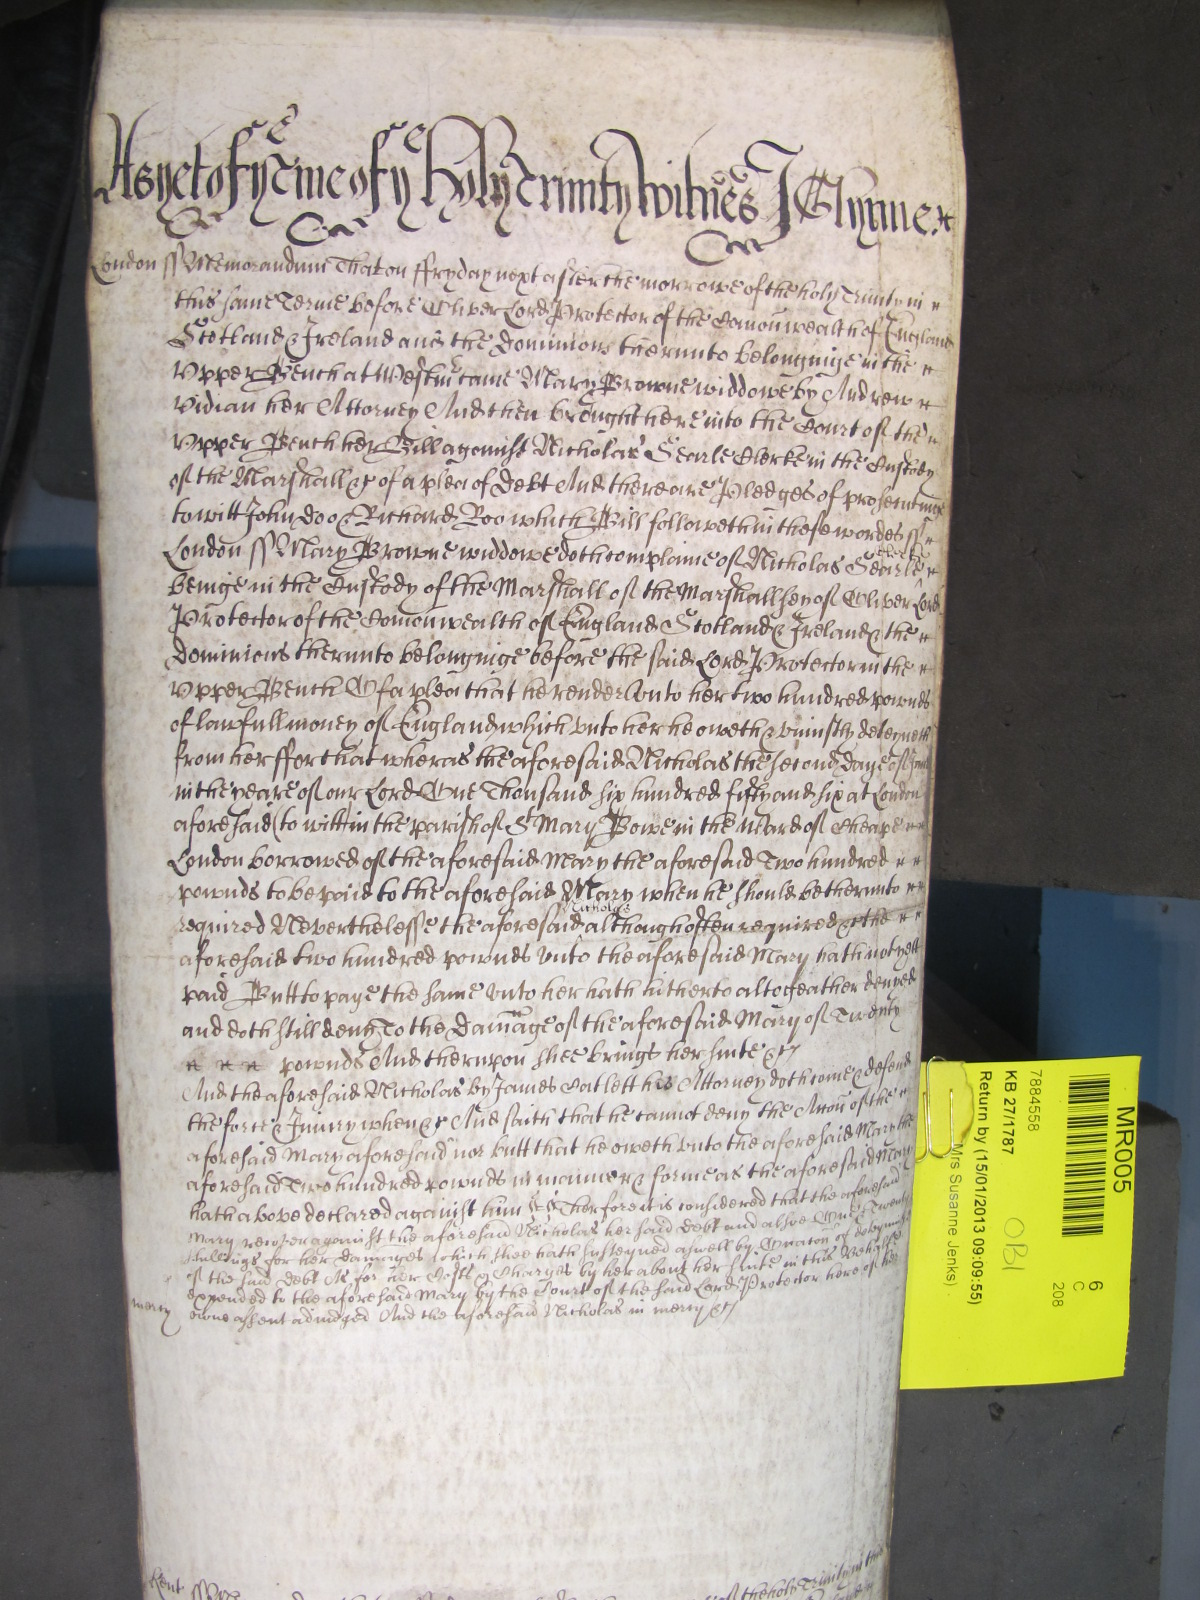 As yet of ye Terme of ye Holy Trinity Witnes J Glynne
London ss Memorandum That on ffryday next after the morrowe of the holy Trinity in
this same Terme before Oliver Lord Protector of the Comonwealth of England
Scotland & Ireland and the Dominions therunto belonginge in the
Upper Bench at Westmr came Mary Browne widdowe by Andrew
Vidian her Attorney And then brought here into the Court of the
Upper Bench her Bill against Nicholas Searle Clerke in the Custody
of the Marshall &c of a plea of Debt And there are Pledges of prosecuting
to witt John Doo & Richard Roo which Bill followeth in these wordes ss
London ss Mary Browne widdowe doth complaine of Nicholas Searle Clerke
beinge in the Custody of the Marshall of the Marshallsey of Oliver Lord
Protector of the Comonwealth of England Scotland & Ireland & the
Dominions therunto belonginge before the said Lord Protector in the
Upper Bench Of a plea that he render unto her two hundred pownds
of lawfull money of England which unto her he oweth & uniustly deteyneth
from her ffor that wheras the aforesaid Nicholas the second daye of
in the yeare of our Lord One Thousand six hundred fifty and six at London
aforesaid (to witt in the parish of St Mary Bowe in the Ward of Cheape
London borrowed of the aforesaid Mary the aforesaid Two hundred
pownds to be paid to the aforesaid Mary when he should be therunto
required Neverthelesse the aforesaid Nicholas although often required &c the
aforesaid two hundred pownds unto the aforesaid Mary hath not yett
paid Butt to paye the same unto her hath hitherto altogeather denyed
and doth still deny To the Damage of the aforesaid Mary of Twenty
pownds And therupon shee brings her suite &c
And the aforesaid Nicholas by James Catlett his Attorney doth come & defend
the force & Iniury when &c And saith that he cannot deny the Accon of the
aforesaid Mary aforesaid nor butt that he oweth unto the aforesaid Mary the
aforesaid Two hundred pownds in manner & forme as the aforesaid Mary
hath above declared against him Therfore it is considered that the aforesaid
Mary recover against the aforesaid Nicholas her said debt and alsoe One & Twenty
shillings for her damages which shee hath susteyned aswell by Occasion of deteyning
of the said debt As for her Costs & Charges by her about her suite in this behalfe
expended to the aforesaid Mary by the Court of the said Lord Protector here of her
owne assent adiudged And the aforesaid Nicholas in mercy &c
mercy
Kent ss
of the holy Trinity in this
MR005
7884558
KB 27/1787
Return by (15/01/2013 09:09:55)
Mrs Susanne Jenks)
OBI
6
C
208